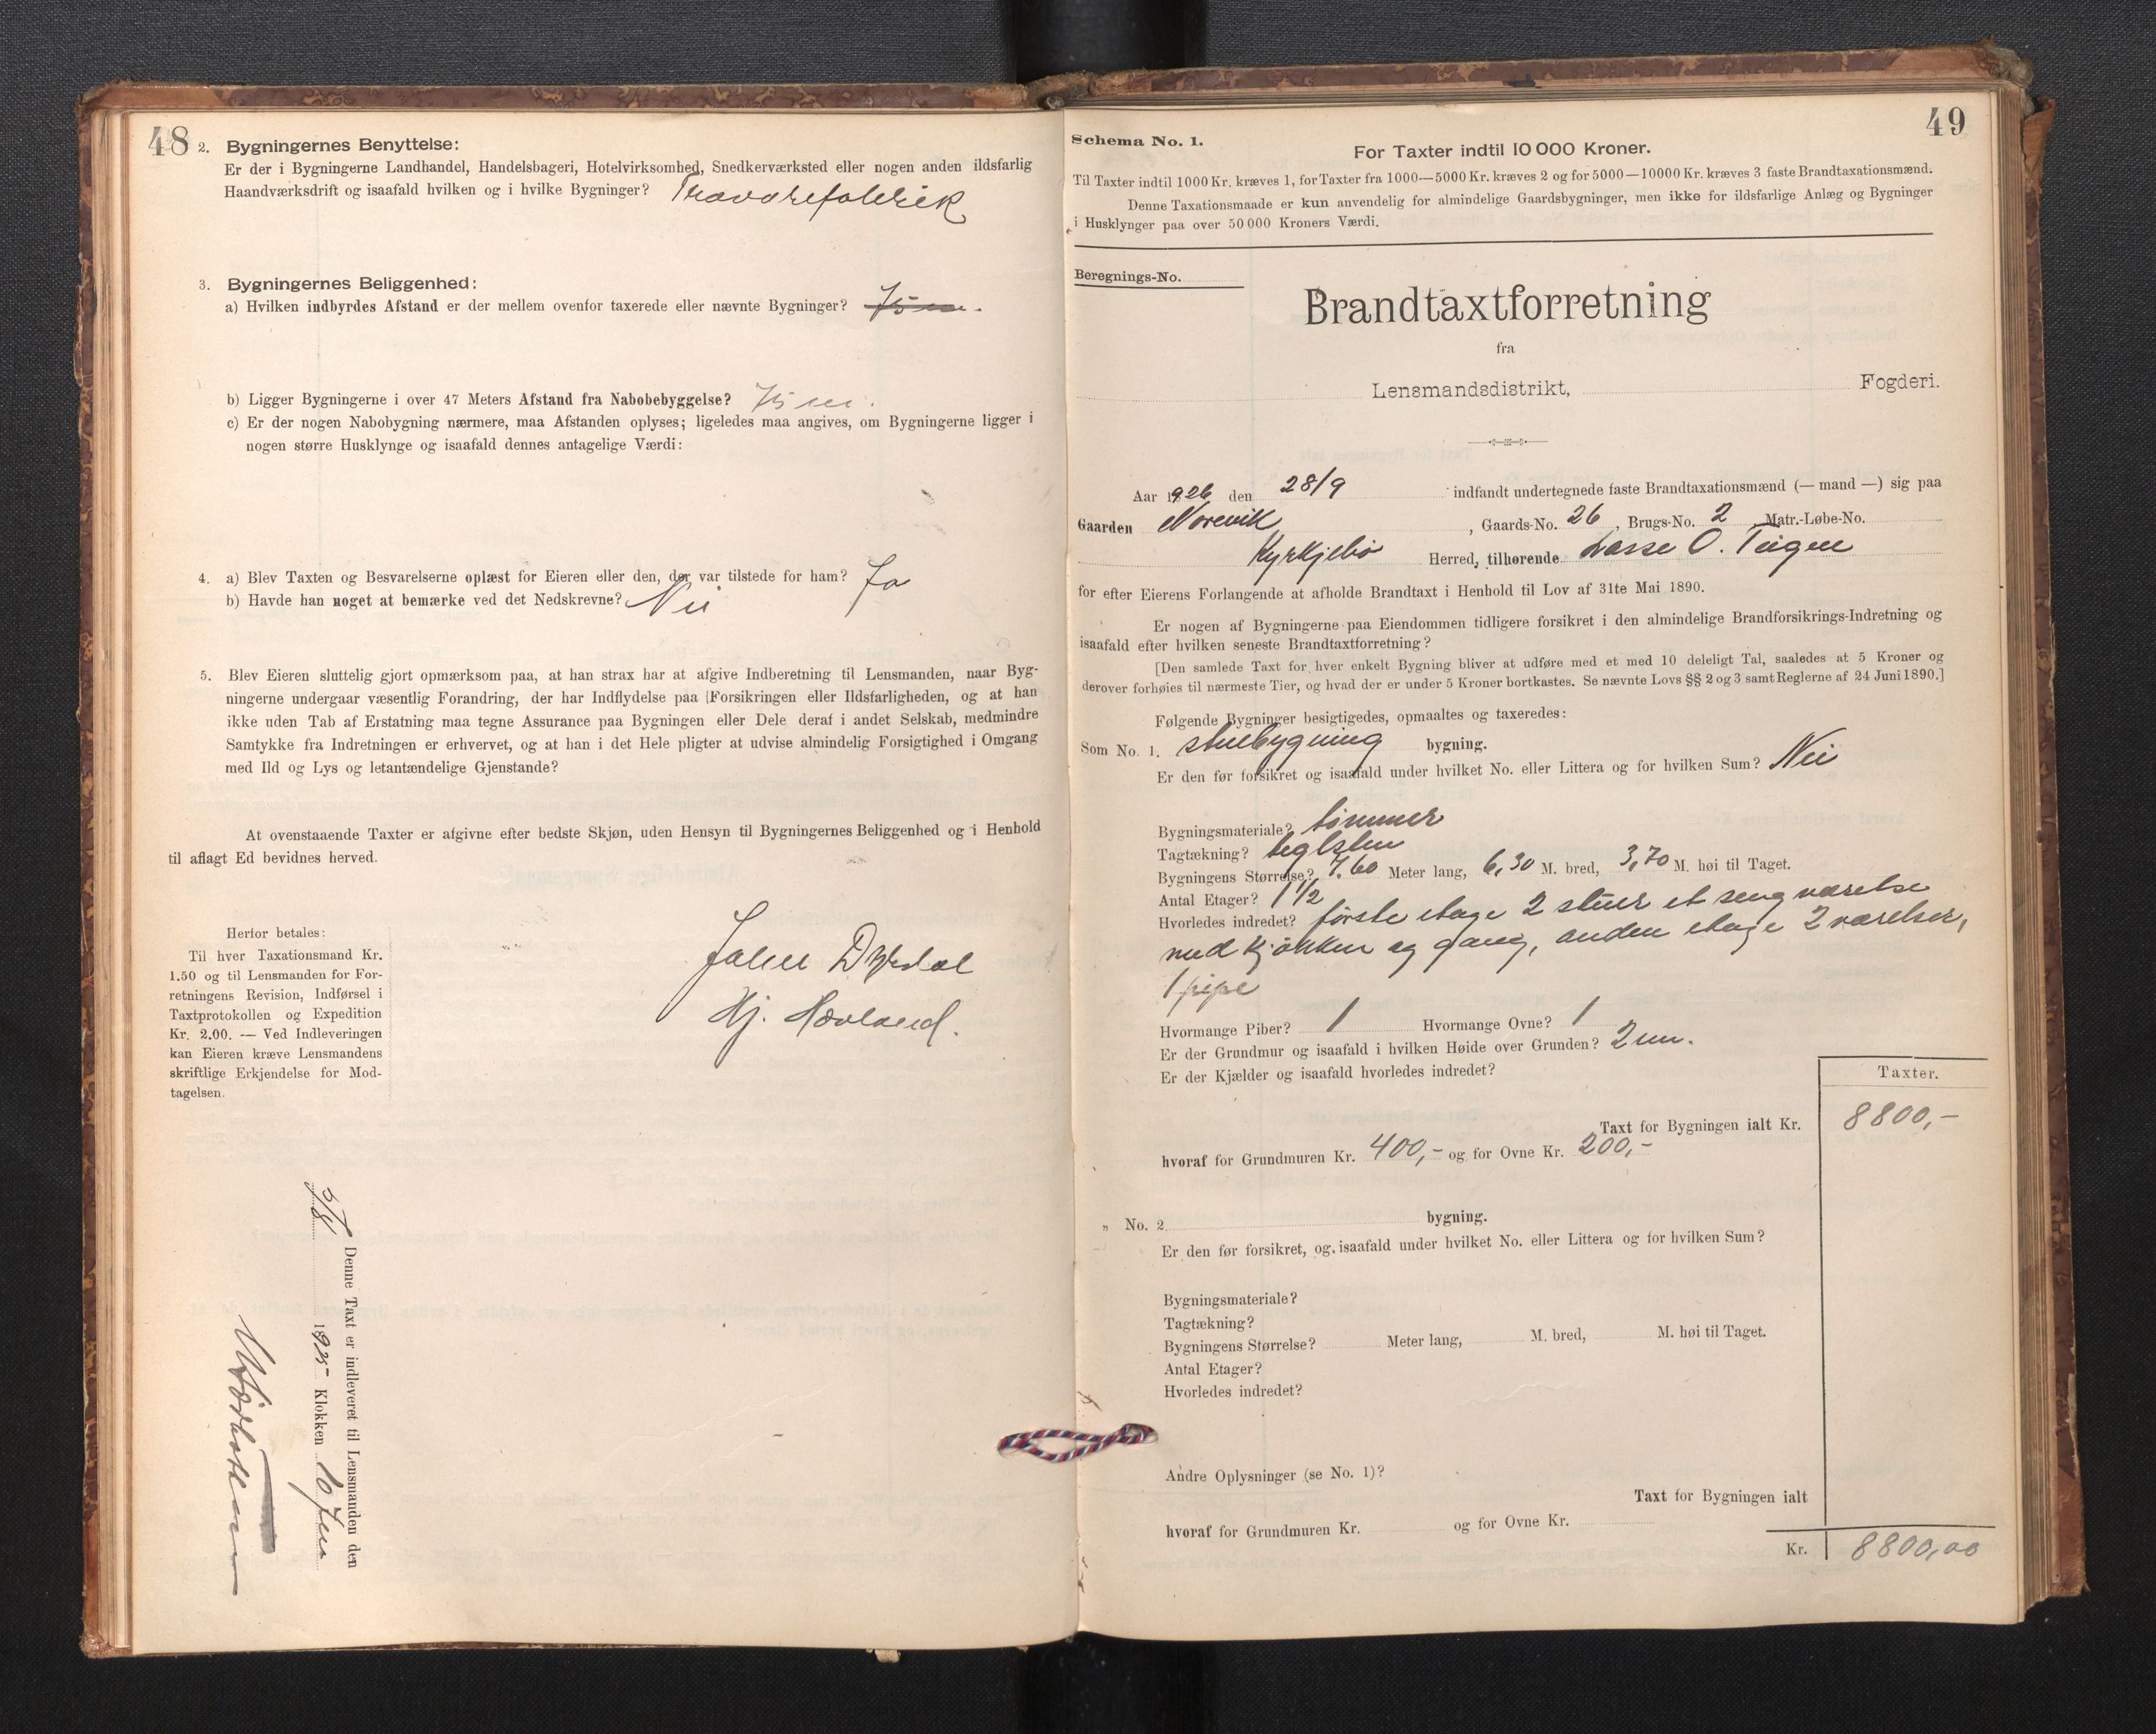 48
2. Bygningernes Benyttelse:
Er der i Bygningerne Landhandel, Handelsbageri, Hotelvirksomhed, Snedkerværksted eller nogen anden ildsfarlig
Haandværksdrift og isaafald hvilken og i hvilke Bygninger? Trævarefabrik
3. Bygningernes Beliggenhed:
a) Hvilken indbyrdes Afstand er der mellem ovenfor taxerede eller nævnte Bygninger? 75 m.
b) Ligger Bygningerne i over 47 Meters Afstand fra Nabobebyggelse? 75 m.
c) Er der nogen Nabobygning nærmere, maa Afstanden oplyses; ligeledes maa angives, om Bygningerne ligger i
nogen større Husklynge og isaafald dennes antagelige Værdi:
4. a) Blev Taxten og Besvarelserne oplæst for Eieren eller den, der var tilstede for ham? Ja
b) Havde han noget at bemærke ved det Nedskrevne? Nei
5. Blev Eieren sluttelig gjort opmærksom paa, at han strax har at afgive Indberetning til Lensmanden, naar Byg-
ningerne undergaar væsentlig Forandring, der har Indflydelse paa Forsikringen eller Ildsfarligheden, og at han
ikke uden Tab af Erstatning maa tegne Assurance paa Bygningen eller Dele deraf i andet Selskab, medmindre
Samtykke fra Indretningen er erhvervet, og at han i det Hele pligter at udvise almindelig Forsigtighed i Omgang
med Ild og Lys og letantændelige Gjenstande?
At ovenstaaende Taxter er afgivne efter bedste Skjøn, uden Hensyn til Bygningernes Beliggenhed og i Henhold
til aflagt Ed bevidnes herved.
Herfor betales:
Til hver Taxationsmand Kr.
1.50 og til Lensmanden for For-
retningens Revision, Indførsel i
Taxtprotokollen og Expedition
Kr. 2.00. — Ved Indleveringen
kan Eieren kræve Lensmandens
skriftlige Erkjendelse for Mod-
tagelsen.
Hj. Hovland.
Denne Taxt er indleveret til Lensmanden den
5/8 1925 Klokken 10 fm
49
Schema No. 1.
For Taxter indtil 10 000 Kroner.
Til Taxter indtil 1000 Kr. kræves 1, for Taxter fra 1000—5000 Kr. kræves 2 og for 5000—10000 Kr. kræves 3 faste Brandtaxationsmænd.
Denne Taxationsmaade er kun anvendelig for almindelige Gaardsbygninger, men ikke for ildsfarlige Anlæg og Bygninger
i Husklynger paa over 50 000 Kroners Værdi.
Beregnings-No.
Brandtaxtforretning
fra
Lensmandsdistrikt, Fogderi.
Aar 1926 den 28/9 indfandt undertegnede faste Brandtaxationsmænd (— mand —) sig paa
Gaarden Norevik, Gaards-No. 26, Brugs-No. 2 Matr.-Løbe-No.
Kyrkjebø Herred, tilhørende Lasse O. Teigen
for efter Eierens Forlangende at afholde Brandtaxt i Henhold til Lov af 31te Mai 1890.
Er nogen af Bygningerne paa Eiendommen tidligere forsikret i den almindelige Brandforsikrings-Indretning og
isaafald efter hvilken seneste Brandtaxtforretning?
[Den samlede Taxt for hver enkelt Bygning bliver at udføre med et med 10 deleligt Tal, saaledes at 5 Kroner og
derover forhøies til nærmeste Tier, og hvad der er under 5 Kroner bortkastes. Se nævnte Lovs §§ 2 og 3 samt Reglerne af 24 Juni 1890.]
Følgende Bygninger besigtigedes, opmaaltes og taxeredes:
Som No. 1. stuebygning bygning.
Er den før forsikret og isaafald under hvilket No. eller Littera og for hvilken Sum? Nei
Bygningsmateriale? tømmer
Tagtækning? teglsten
Bygningens Størrelse? 7.60 Meter lang, 6,30 M. bred, 3,70 M. høi til Taget.
Antal Etager? 1 1/2
Hvorledes indredet? første etage 2 stuer et sengværelse
med kjøkken og gang, anden etage 2 værelser,
1 pipe
Hvormange Piber? 1 Hvormange Ovne? 1
Er der Grundmur og isaafald i hvilken Høide over Grunden? 2 m.
Er der Kjælder og isaafald hvorledes indredet?
Taxter.
Taxt for Bygningen ialt Kr. 8800,-
hvoraf for Grundmuren Kr. 400,- og for Ovne Kr. 200,-
„ No. 2 bygning.
Er den før forsikret, og isaafald under hvilket No. eller Littera og for hvilken Sum?
Bygningsmateriale?
Tagtækning?
Bygningens Størrelse? Meter lang, M. bred, M. høi til Taget.
Antal Etager?
Hvorledes indredet?
Andre Oplysninger (se No. 1)?
Taxt for Bygningen ialt
hvoraf for Grundmuren Kr. og for Ovne Kr.
Kr. 8800,00